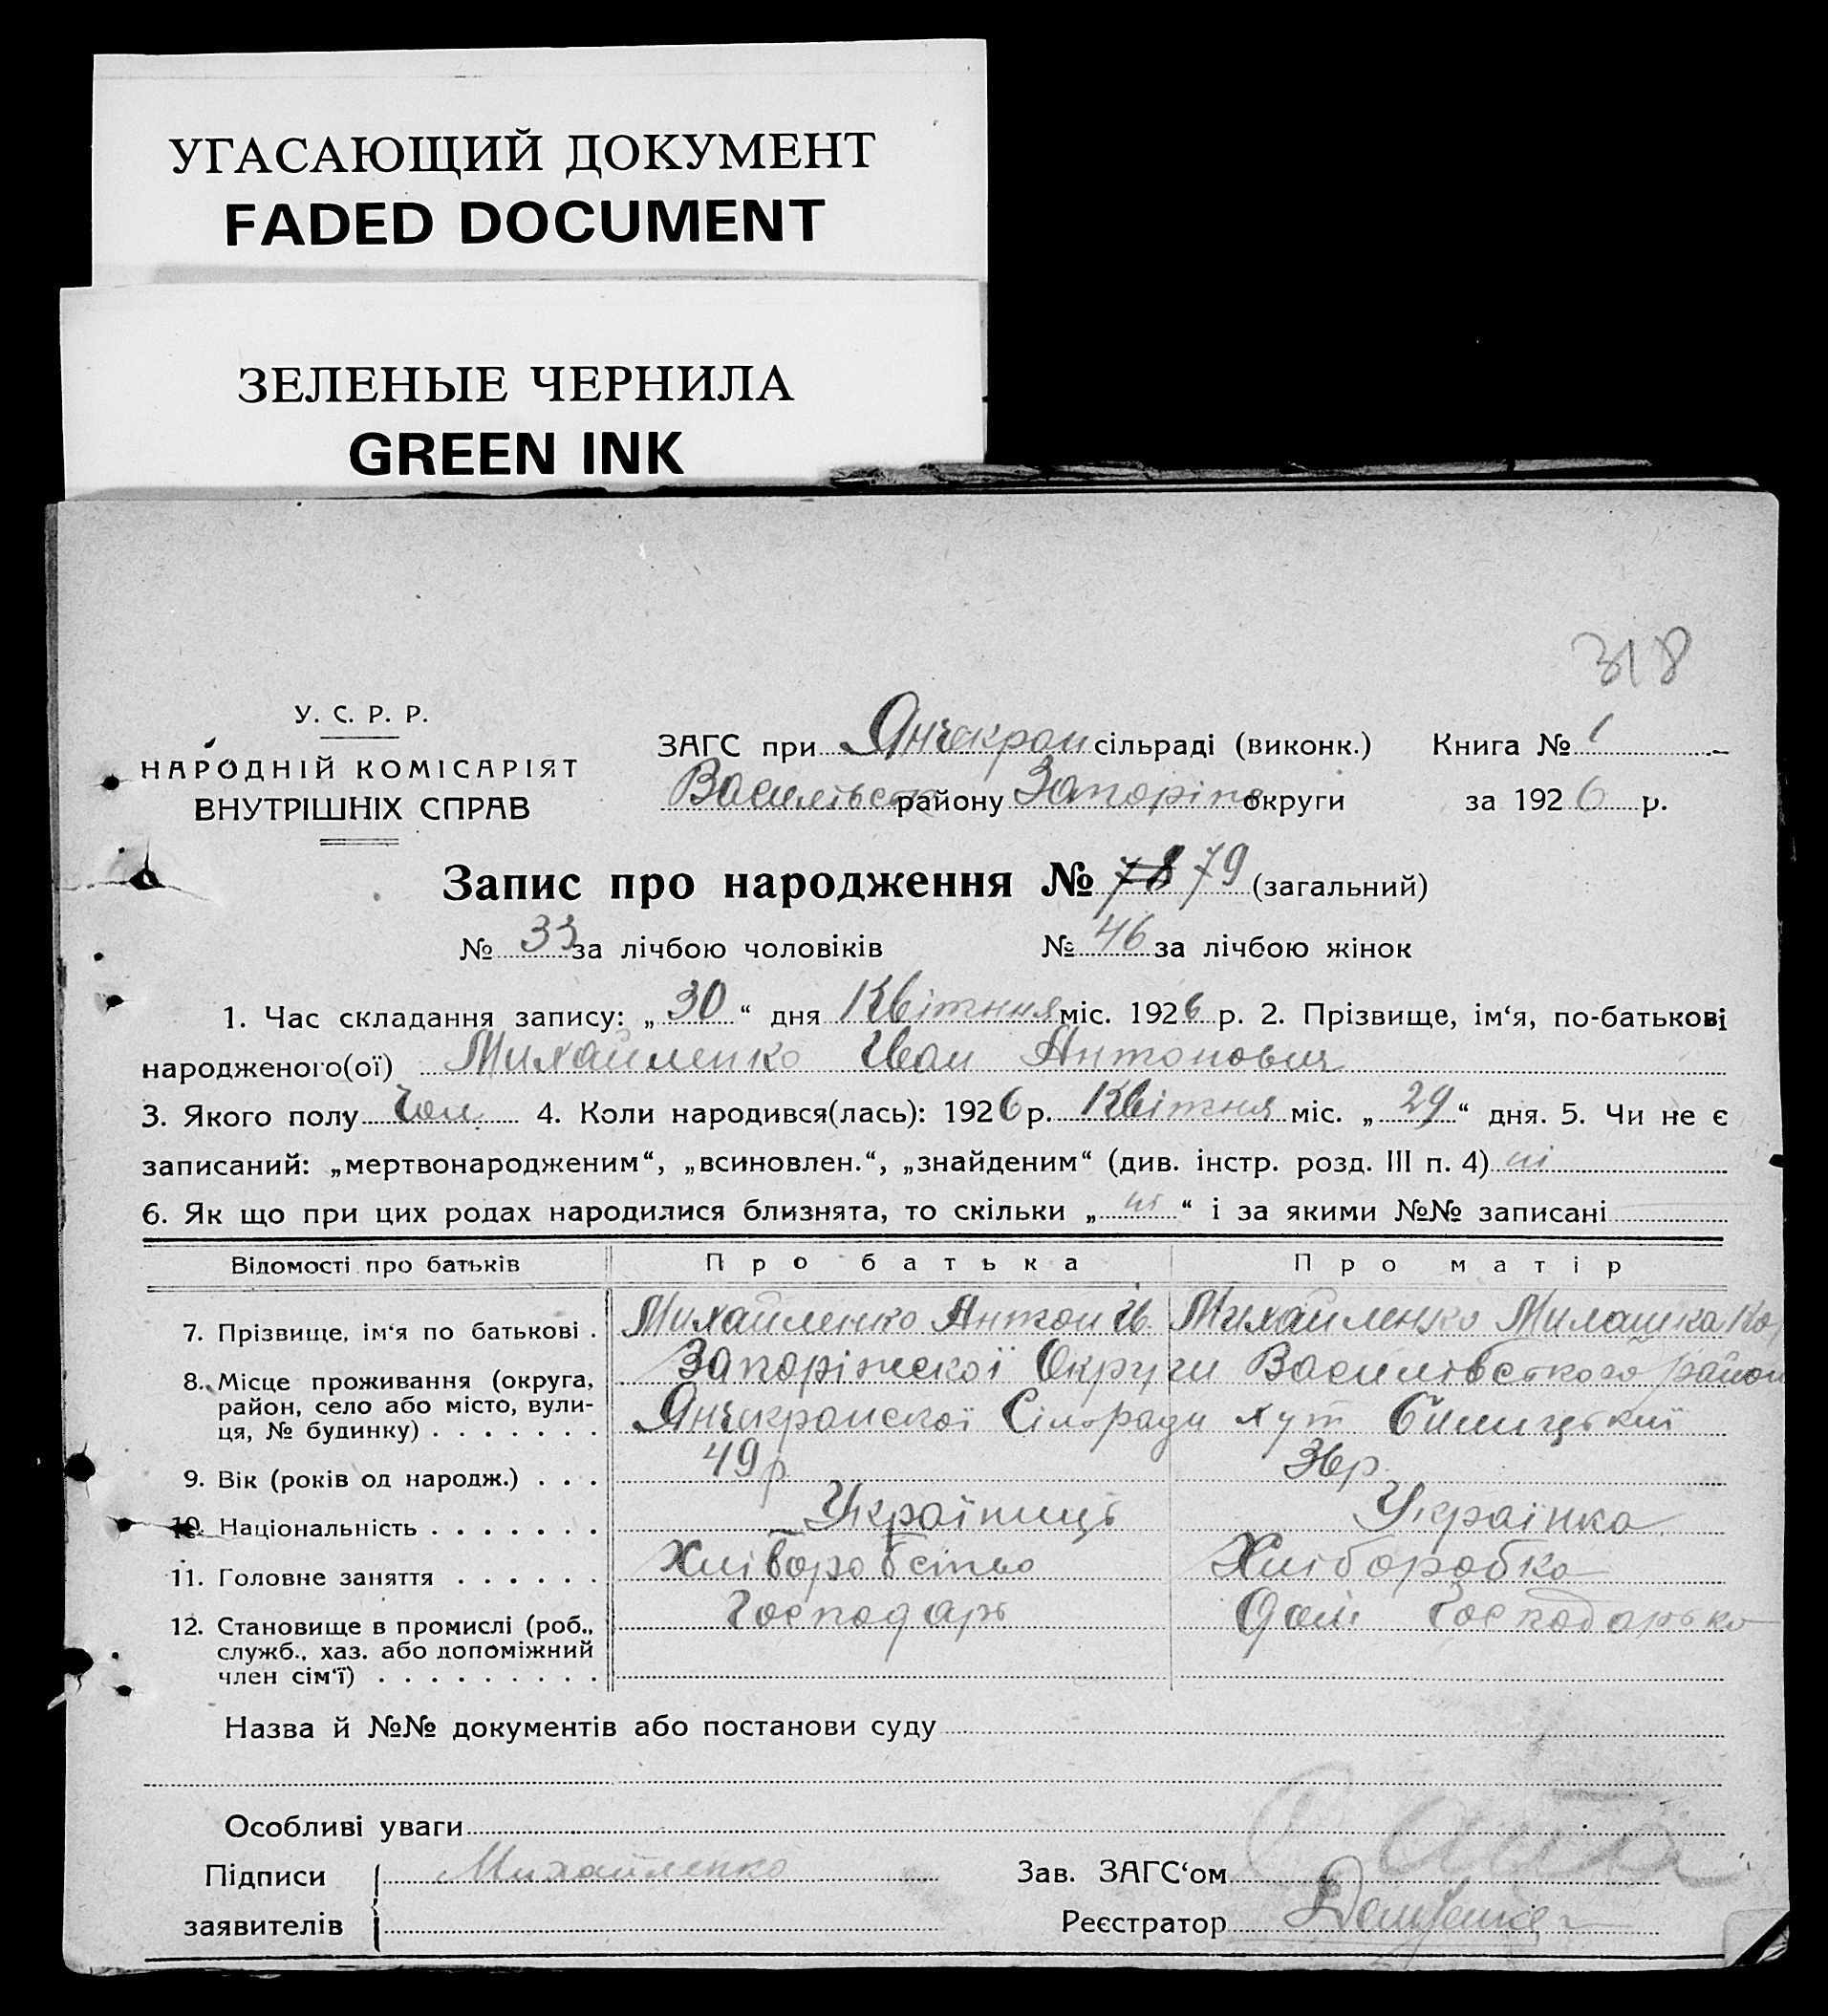 УГАСАЮЩИЙ ДОКУМЕНТ
FADED DOCUMENT
ЗЕЛЕНЫЕ ЧЕРНИЛА
GREEN INK
318
У. С. Р. Р.
НАРОДНІЙ КОМІСАРІЯТ
ВНУТРІШНІХ СПРАВ
ЗАГС при Янчекран сільраді (виконк.) Книга № 1
Василівськ району Запоріж округи за 1926 р.
Запис про народження № 78 79 (загальний)
№ 33 за лічбою чоловіків № 46 за лічбою жінок
1. Час складання запису: „30“ дня Квітния міс. 1926 р. 2. Прізвище, ім‘я, по-батькові
народженого(ої) Михайленко Іван Антонович
3. Якого полу Чол. 4. Коли народився(лась): 1926 р. Квітня міс. „29“ дня. 5. Чи не є
записаний: „мертвонародженим“, „всиновлен.“, „знайденим“ (див. інстр. розд. III п. 4) ні
6. Як що при цих родах народилися близнята, то скільки „ні“ і за якими №№ записані
Відомості про батьків Про батька Про матір
7. Прізвище, ім‘я по батькові . Михайленко Антон Ів. Михайленко Милашка
8. Місце проживання (округа, район, село або місто, вулиця, № будинку) . . . . . . . Запоріжскої Округи Василівсткого район
Янчекранскої Сільради хут
9. Вік (років од народж.) . . . 49 р 36 р.
10. Національність . . . . . . . Україниць Українка
11. Головне заняття . . . . . . Хліборобство Хліборобка
12. Становище в промислі (роб., служб., хаз. або допоміжний член сім‘ї) . . . . . . . . . Господарь Дом Господарько
Назва й №№ документів або постанови суду
Особливі уваги
Підписи заявителів Михайленко
Зав. ЗАГС‘ом
Реєстратор